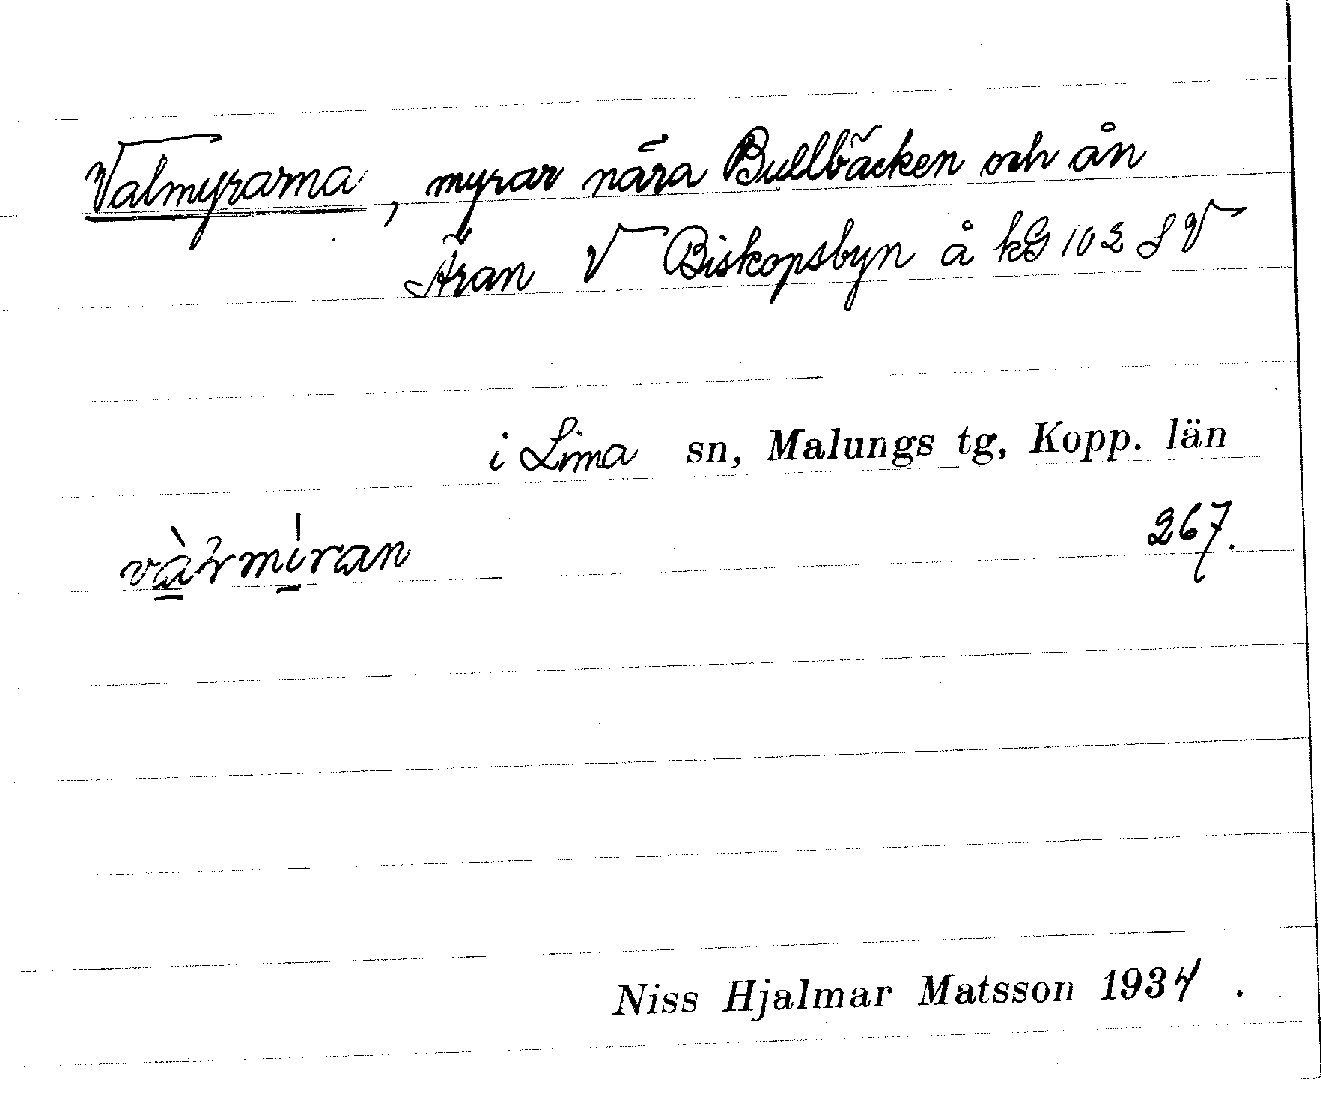 Valmyrarna, myrar nära Bullbäcken och ån
Äran V Biskopsbyn å kG 102 SV
i Lima sn, Malungs tg, Kopp. län
267.
Niss Hjalmar Matsson 1934.